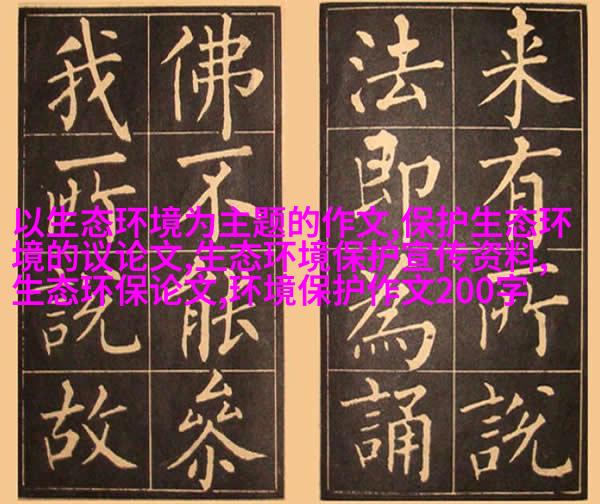 来有所説
法即為誦
佛不能叅
我所説故
以生态环境为主题的作文,保护生态环
境的议论文,生态环境保护宣传资料,
生态环保论文,环境保护作文200字